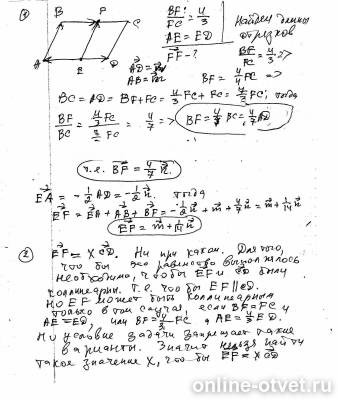 ①
B F C
A E D
BF/FC = 4/3
AE = ED
EF - ?
AD = n
AB = m
Найдем длины
отрезков
BF/FC = 4/3 =>
BF = 4/3 FC =>
BC = AD = BF + FC = 4/3 FC + FC = 7/3 FC; тогда
BF/BC = 4/3 FC / 7/3 FC = 4/7 => BF = 4/7 BC = 4/7 AD
т.е. BF = 4/7 n.
EA = -1/2 AD = -1/2 n. тогда
EF = EA + AB + BF = -1/2 n + m + 4/7 n = m + 1/14 n
EF = m + 1/14 n
② EF = X CD. Ни при каком. Для того,
что бы это равенство выполнялось
необходимо, чтобы EF и CD были
коллинеарны. Т.е. что бы EF || CD.
Но EF может быть коллинеарным
только в том случае, если BF = FC и
AE = ED, или BF = 4/3 FC и AE = 4/3 ED.
Но условие задачи запрещает такие
варианты. Значит нельзя найти
такое значение X, что бы EF = X CD
online-otvet.ru